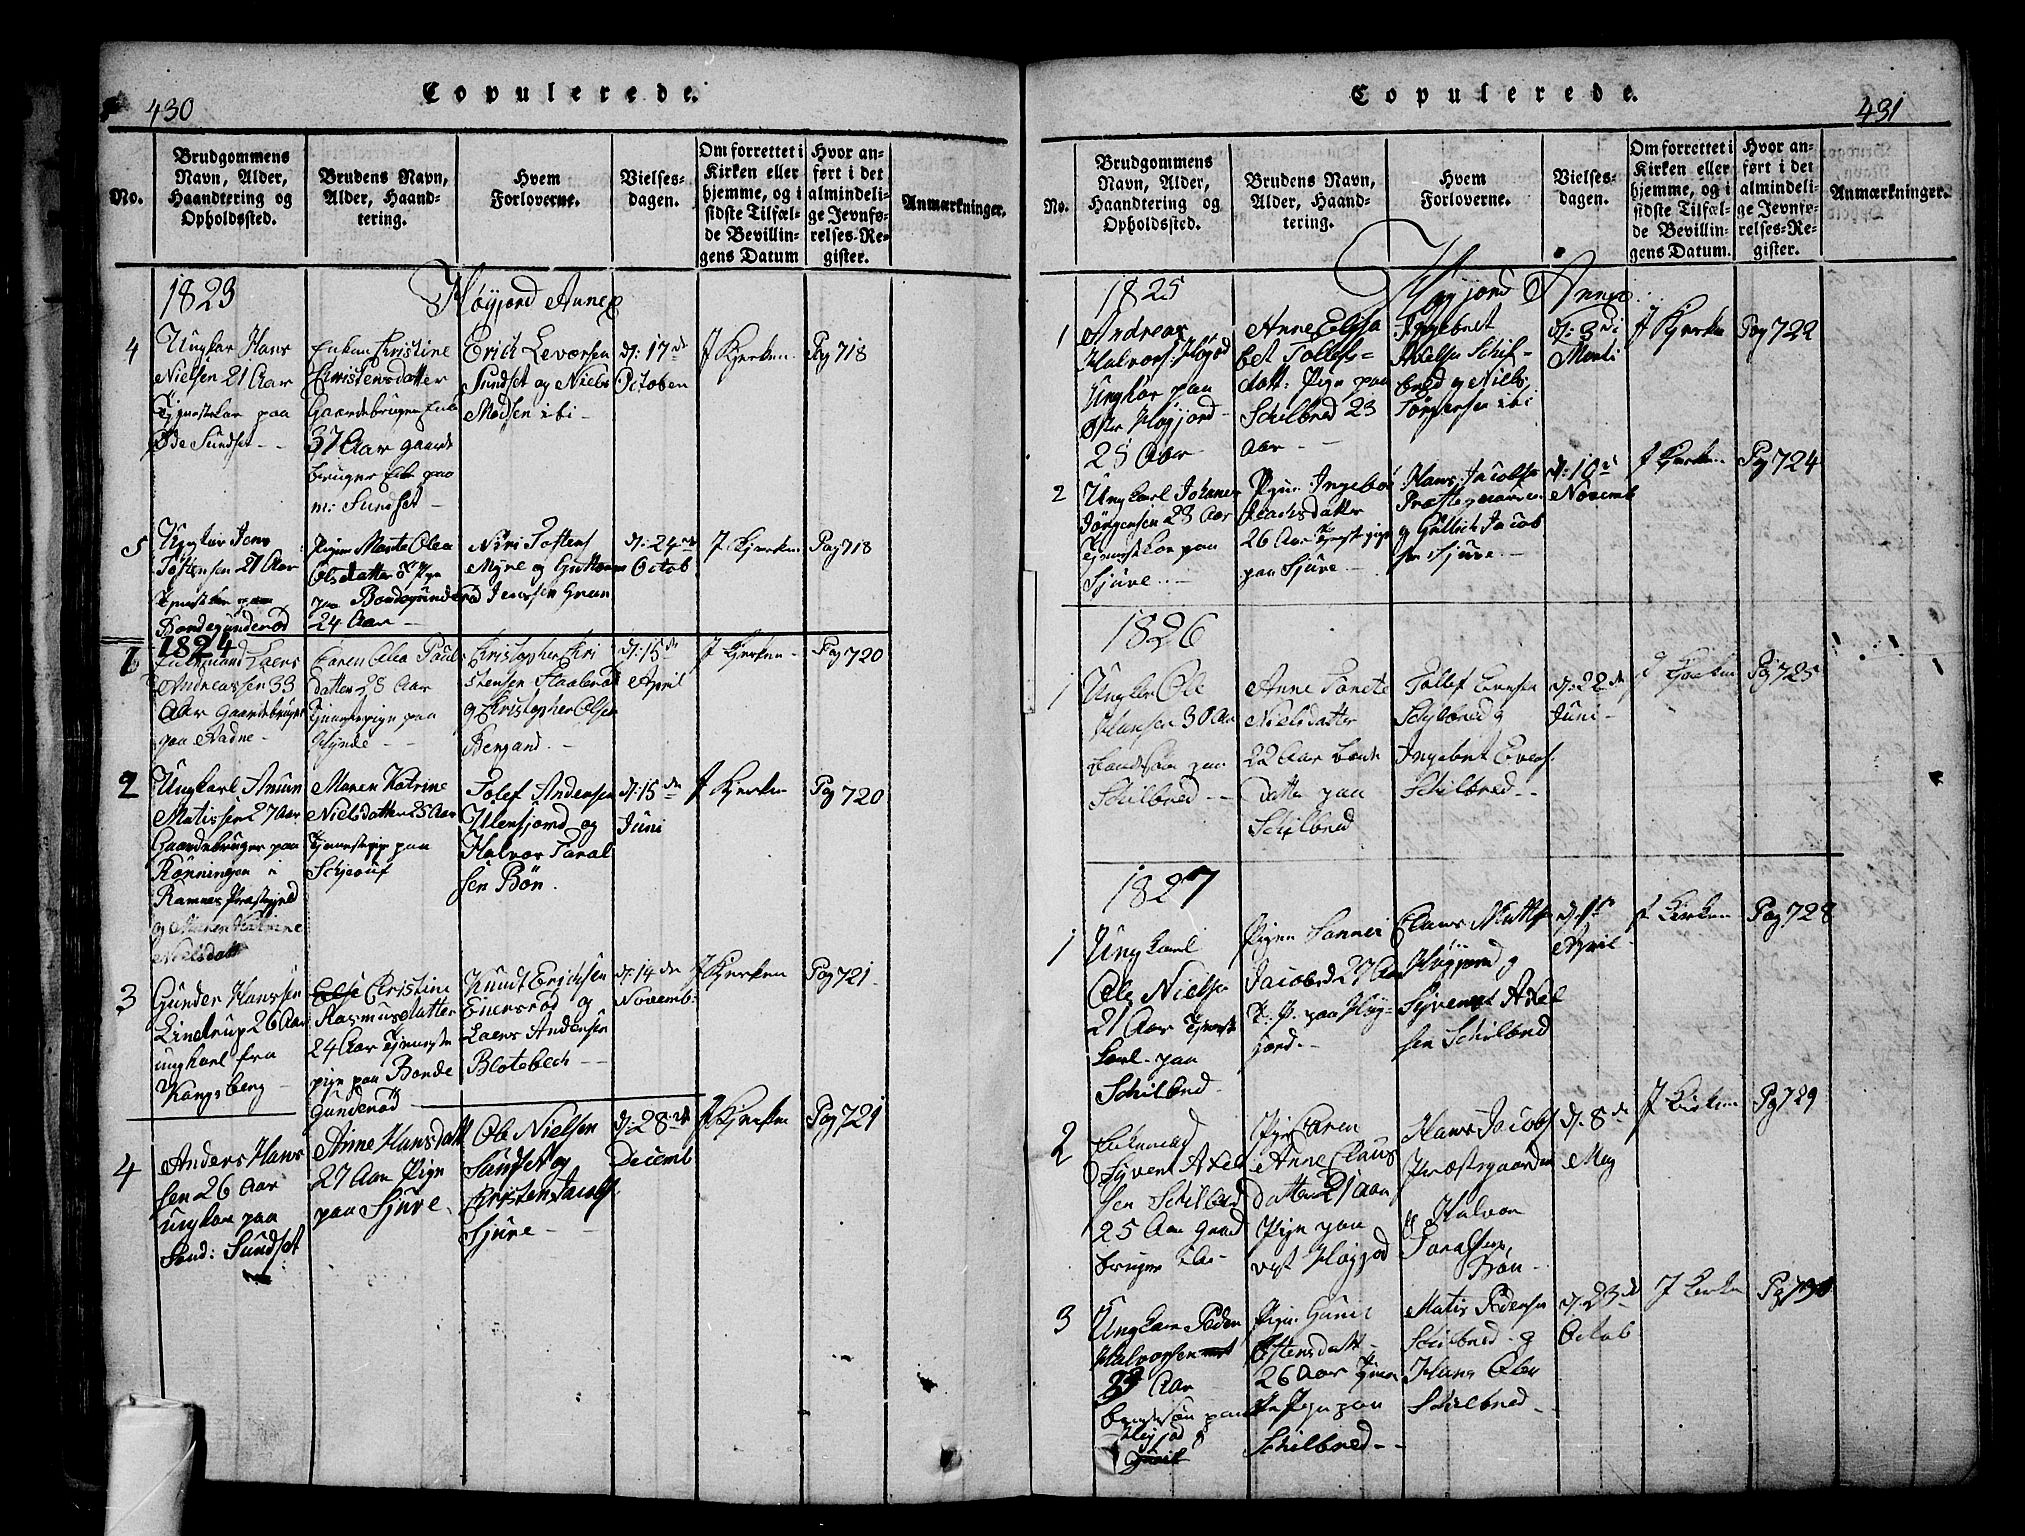 430
Copulerede.
No.
Brudgommens Navn, Alder, Haandtering og Opholdssted.
Brudens Navn, Alder, Haandtering.
Hvem Forloverne.
Vielsesdagen.
Om forrettet i Kirken eller hjemme, og i sidste Tilfælde Bevillingens Datum
Hvor anført i det almindelige Jevnførelses-Register.
Anmærkninger.
1823
Høyjord Annex
4
Ungkar Hans
Nielsen 21 Aar
paa
Øde Sundset
Enken Christine
Christensdatter
Gaardebruger
37 Aar gaard
bruger Enke paa
m: Sundset
Erich Leversen
Sundset og Niels
Madsen ibi
d: 17de
October
J Kjerken
Pag 718
5
Ungkar Jens
Tostensen 27 Aar
Bondegunderød
Pigen Marte Olea
Olsdatter
paa Bondegunderød
24 Aar
Niri Tostens
Myre og Guttorm
Jenssen Gran
d: 24de
Octob
J Kjerken
Pag 718
1824
1
Enkemand Laers
Andreassen 33
Aar Gaardebruger
paa
Caren Olea Pauls
datter 28 Aar
Tjenestepige paa
Hynde
Christopher Chri
stensen
og Christopher Olsen
Bergand
d: 15de
April
J Kjerken
Pag 720
2
Ungkarl Amun
Matissen 27 Aar
Gaardebruger paa
Rönningen i
Ramnes Præstegjeld
og Maren Katrine
Nielsdatt
Maren Katrine
Nielsdatter 25 Aar
Tjenestepige paa
Schjeauf
Tolef Andersen
og
Halvor Taral
sen Bön.
d: 15de
Juni
J Kjerken
Pag 720
3
Gunder Hanssen
Lindrup 26 Aar
ungkarl fra
Kongsberg
Else Christine
Rasmusdatter
24 Aar Tjeneste
pige paa Bonde
gunderöd
Knudt Erichsen
og
Laers Andersen
Blotebech
d: 14de
Novemb:
J Kjerken
Pag 721
4
Anders Hans
sen 26 Aar
ungkar paa
Sönd: Sundset
Anne Hansdatt
27 Aar Pige
paa Sjuve
Ole Nielsen
Sundset og
Christen Jacobs
Sjuve
d: 28de
Decemb
J Kjerken
Pag 721
Copulerede.
431
No.
Brudgommens Navn, Alder, Haandtering og Opholdssted.
Brudens Navn, Alder, Haandtering.
Hvem Forloverne.
Vielsesdagen.
Om forrettet i Kirken eller hjemme, og i sidste Tilfælde Bevillingens Datum.
Hvor anført i det almindelige Jevnførelses-Register.
Anmærkninger.
1825
Høyjord Annex
1
Andreas
Halvors: Höyjod
Ungkar paa
Öster Höyjord
25 Aar
Anne Elisa
bet Tollefs=
datt: Pige paa
Schilbred 23
aar
Ingebret
Axelsen Schil=
bred og Niels
Jörgensen ibi
d: 3di
Marti
J Kjerken
Pag 722
2
Ungkarl Johanes
Jörgensen 23 Aar
Tjenestekar paa
Sjuve
Pigen Ingebor
Isachsdatter
26 Aar Tjenestpige
paa Sjuve
Hans Jacobsen
Præstegaarden
og Gullich Jacob
sen Sjuve
d: 10de
Novemb
J Kjerken
Pag 724
1826
1
Ungkar Ole
Hansen 30 Aar
Bondesön paa
Schilbred
Anne Tonete
Nielsdatter
22 Aar Bonde
datter paa
Schilbred
Tollef Evensen
Schilbred og
Ingebret Evens.
Schilbred
d: 22de
Juni
J Kjerken
Pag 725
1827
1
Ungkarl
Ole Nielsen
21 Aar Tjeneste
karl paa
Schilbred
Pigen
Jacobsd 27 Aar
T: P. paa Höy-
jord
Claus Mattis
Höyjord og
Syvert Axel
sen Schilbred
April
J Kirken
Pag 728
2
Enkemand
Syvert Axel
sen Schilbred
25 Aar Gaard
bruger ibi
Pige Caren
Anne Claus
datter 21 aar
Pige paa
vest Höyjod
Hans Jacobs
Præstegaarden
og Halvor
Taralsen
Bön
d: 8de
May
J Kirken
Pag 729
3
Ungkar Peder
Halvorsen
23 Aar
bondesön paa
Höyjod og
Pigen Gunil
Östensdatt
26 Aar Tjene
ste Pige paa
Schilbred
Matis Pedersen
Schilbred og
Hans Olsen
Schilbred
d: 23de
Octob
J Kirken
Pag 730